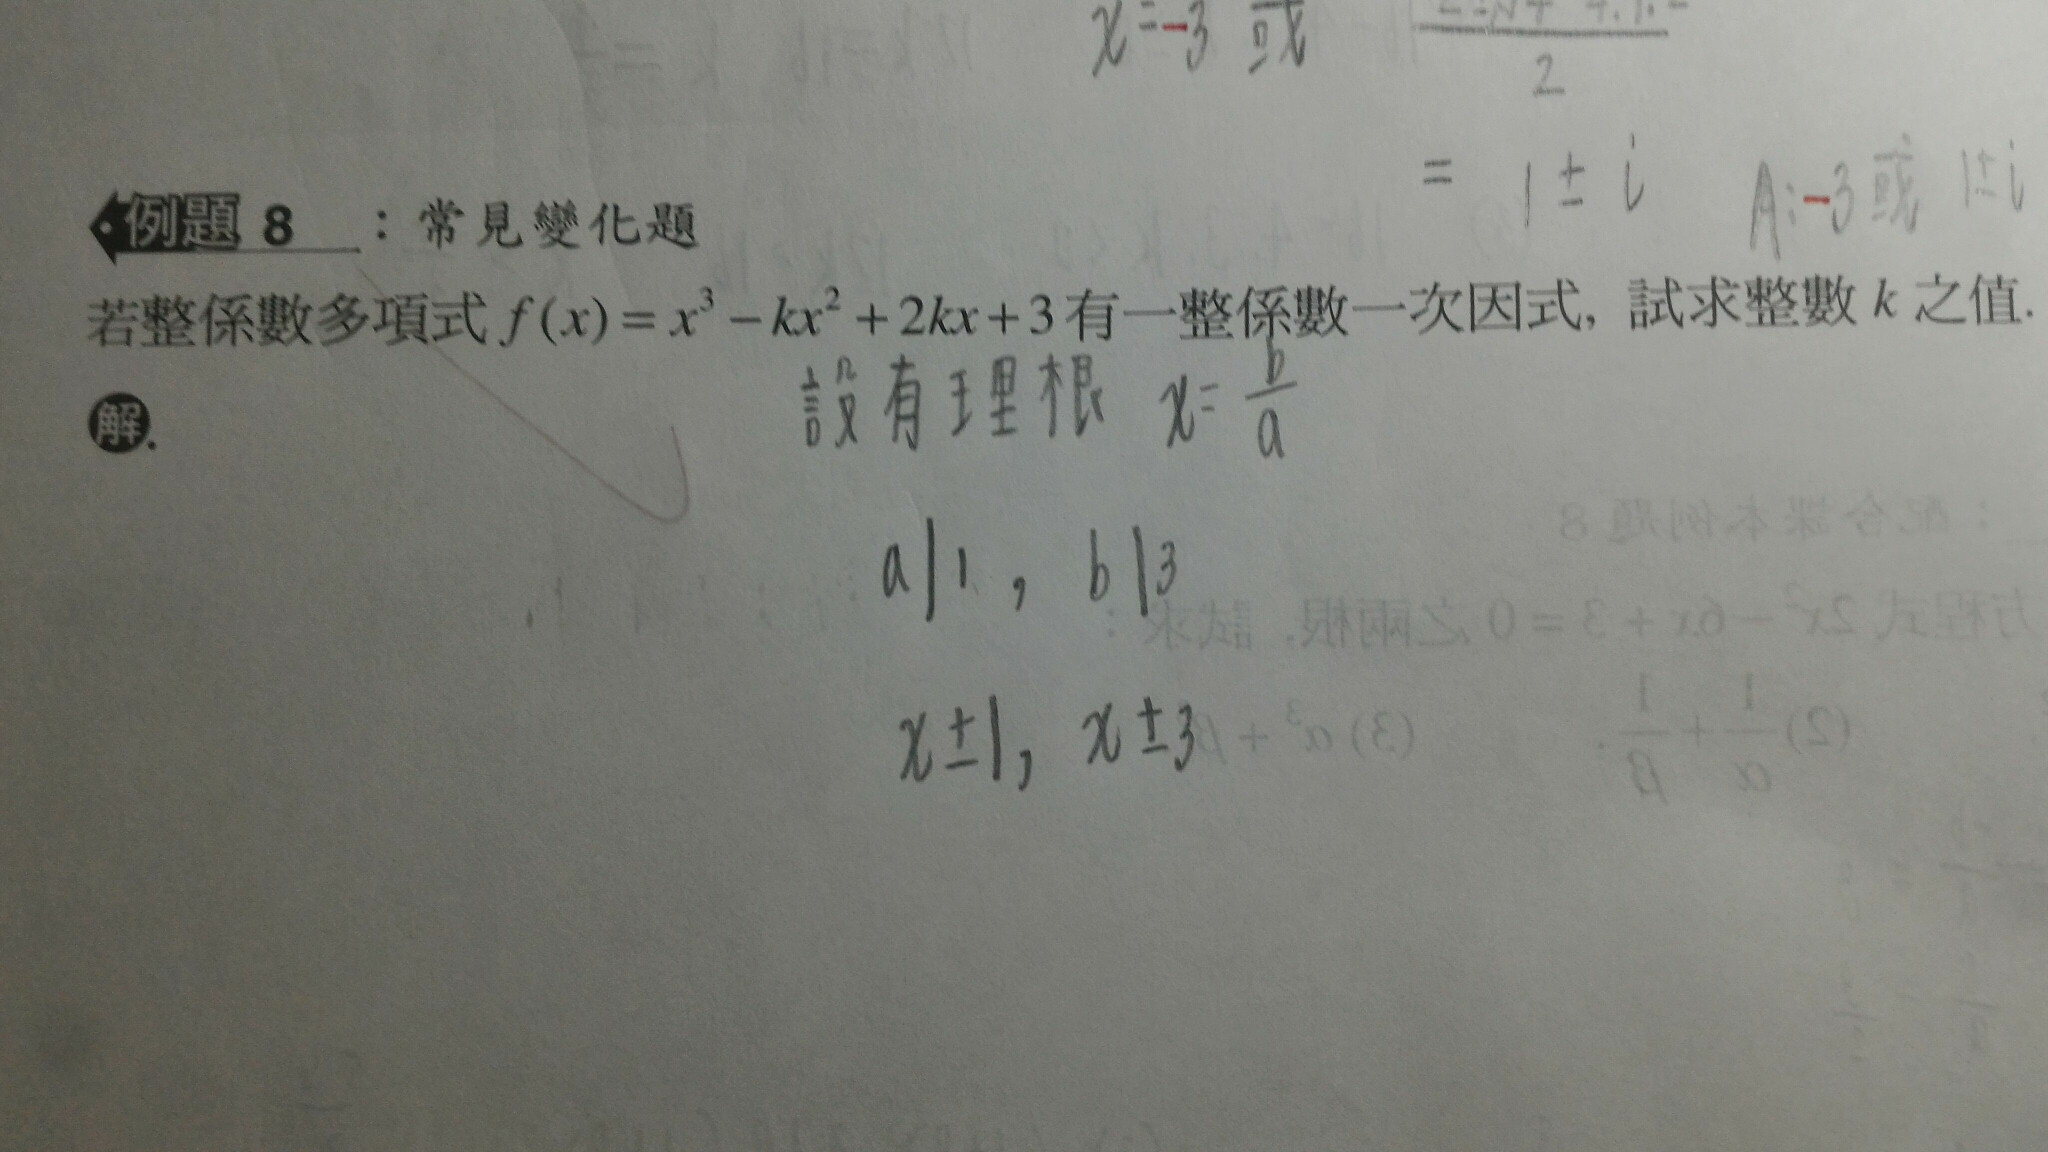 x=-3 或
2
= 1±i A:-3或 1±i
例題 8 :常見變化題
若整係數多項式 f(x)=x³-kx²+2kx+3有一整係數一次因式, 試求整數 k 之值.
解. 設有理根 x=b/a
a|1, b|3
x±1, x±3